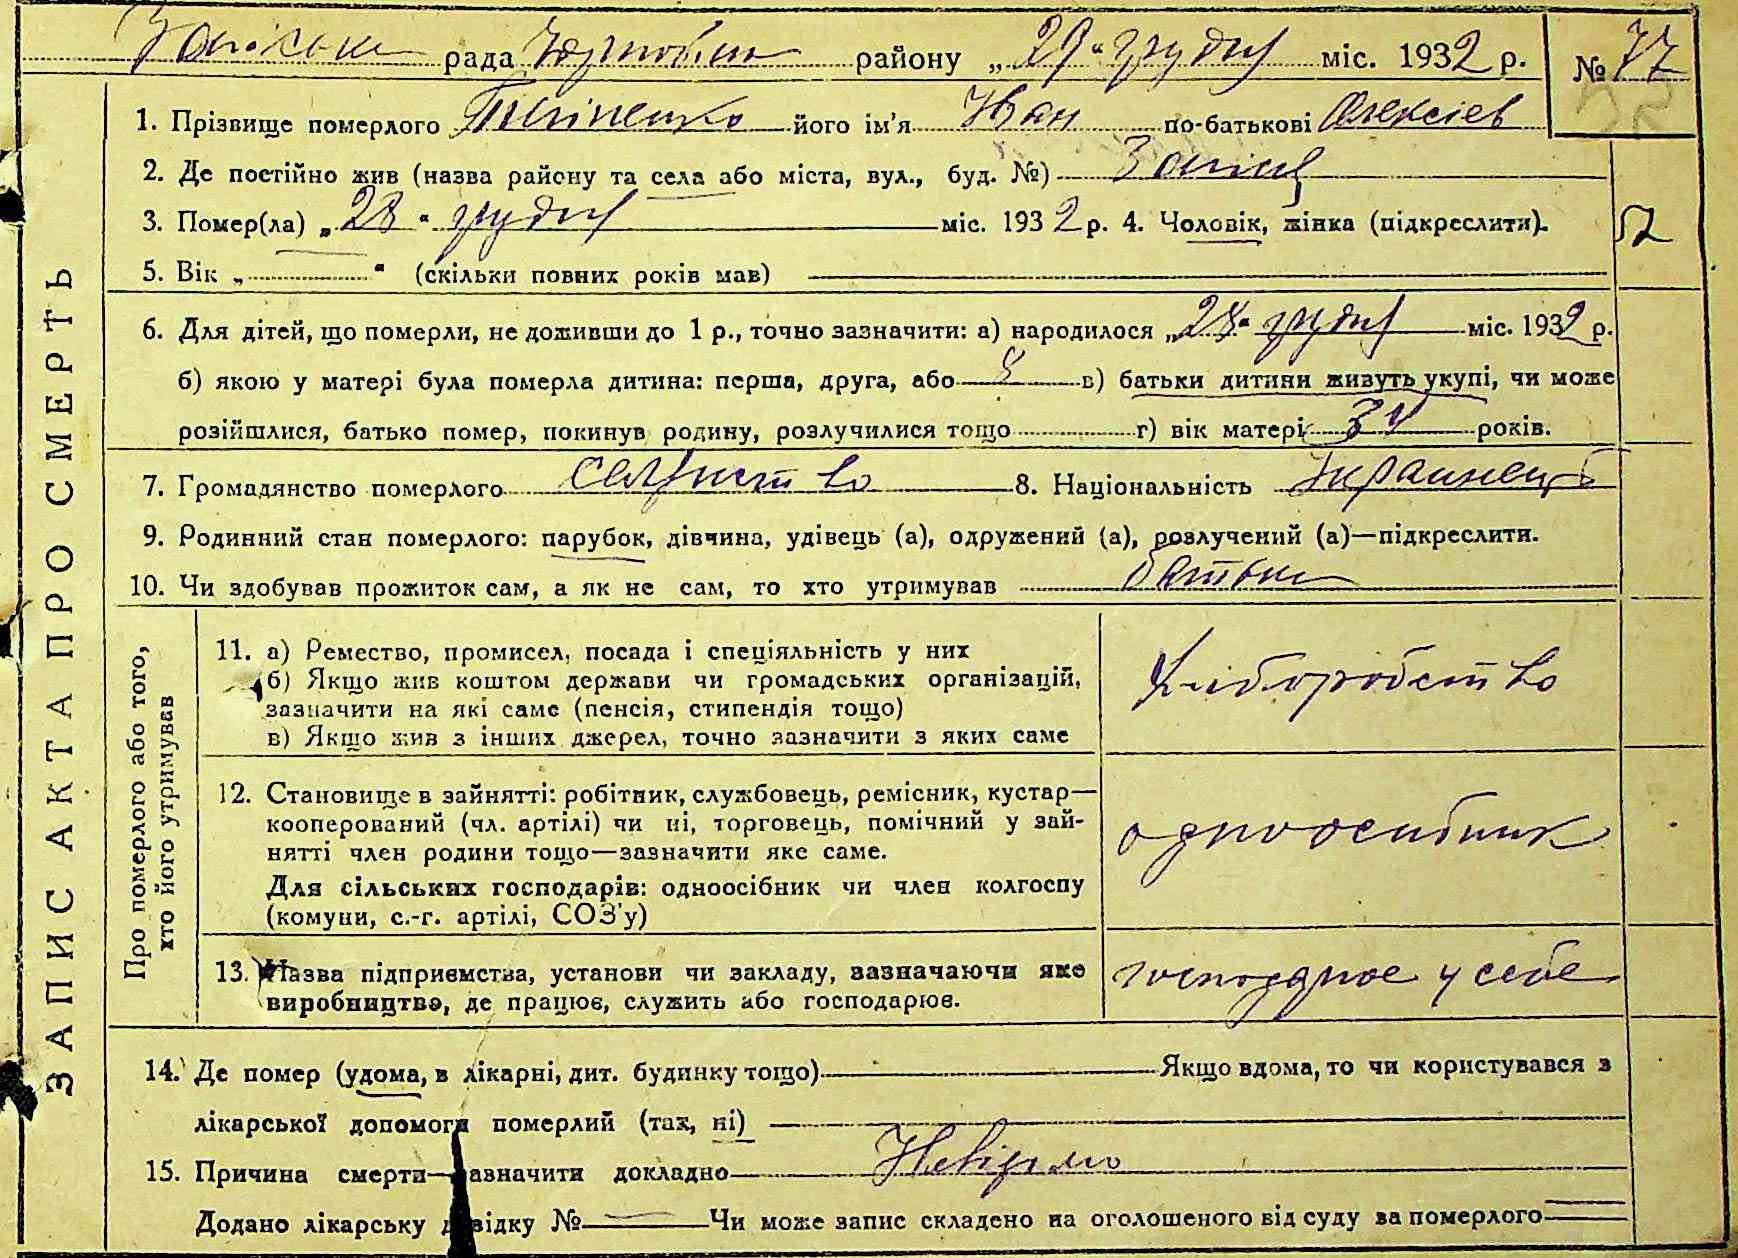 рада района „29“ грудня міс. 1932 р. № 77
1. Прізвище померлого його ім'я Іван по-батькові Олексієв
2. Де постійно жив (назва району та села або міста, вул., буд. №)
3. Помер(ла) „28“ грудня міс. 1932 р. 4. Чоловік, жінка (підкреслити).
52
5. Вік „ “ (скільки повних років мав)
6. Для дітей, що померли, не доживши до 1 р., точно зазначити: а) народилося „28“ грудня міс. 1932 р.
б) якою у матері була померла дитина: перша, друга, або в) батьки дитини живуть укупі, чи може
розійшлися, батько помер, покинув родину, розлучилися тощо г) вік матері 34 років.
7. Громадянство померлого 8. Національність Украинець
9. Родинний стан померлого: парубок, дівчина, удівець (а), одружений (а), розлучений (а)—підкреслити.
10. Чи здобував прожиток сам, а як не сам, то хто утримував батьки
ЗАПИС АКТА ПРО СМЕРТЬ
Про померлого або того,
хто його утримував
11. а) Ремество, промисел, посада і спеціяльність у них
б) Якщо жив коштом держави чи громадських організацій,
зазначити на які саме (пенсія, стипендія тощо)
в) Якщо жив з інших джерел, точно зазначити з яких саме
Хліборобство
12. Становище в зайнятті: робітник, службовець, ремісник, кустар—
кооперований (чл. артілі) чи ні, торговець, помічний у зай-
нятті член родини тощо—зазначити яке саме.
Для сільських господарів: одноосібник чи член колгоспу
(комуни, с.-г. артілі, СОЗ'у)
одноосибник
13. Назва підприємства, установи чи закладу, зазначаючи яке
виробництво, де працює, служить або господарює.
господарює у себе
14. Де помер (удома, в лікарні, дит. будинку тощо) Якщо вдома, то чи користувався з
лікарської допомоги померлий (так, ні)
15. Причина смерти—зазначити докладно Невідомо
Додано лікарську довідку № — Чи може запис складено на оголошеного від суду за померлого